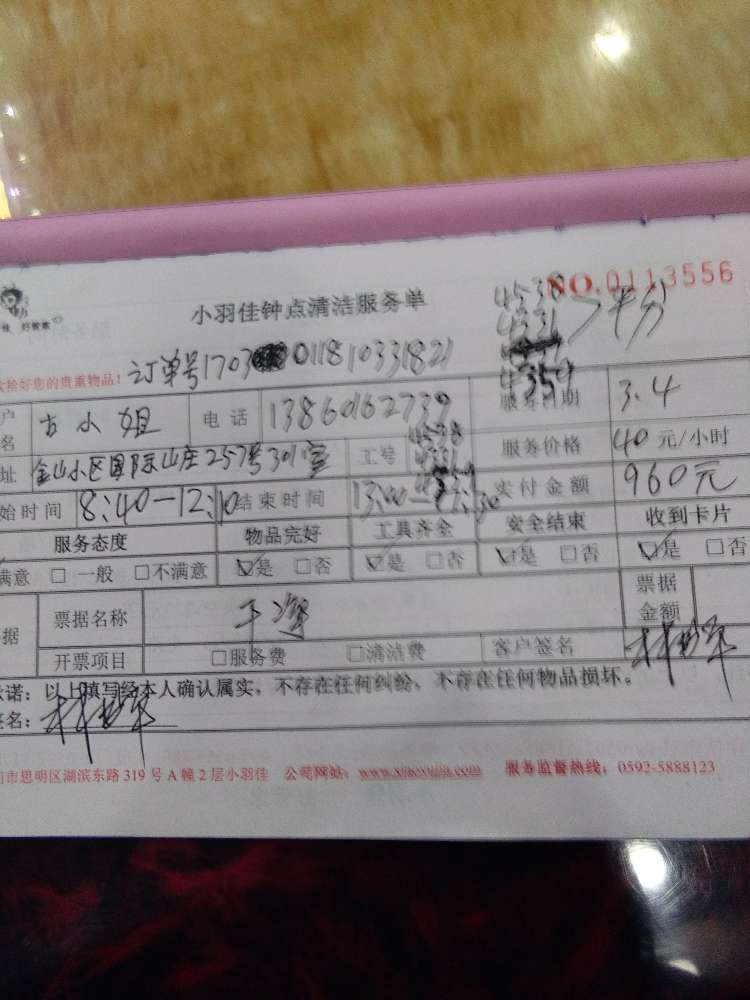 NO.0113556
小羽佳钟点清洁服务单
4538
4531 平分
4359
佳 好管家
拾好您的贵重物品! 订单号1703 011810331821
户名 古小姐 电话 13860162739 服务日期 3.4
址 金山小区国际山庄257号301室 工号 4538 服务价格 40元/小时
始时间 8:40-12:10 结束时间 实付金额 960元
服务态度 物品完好 工具齐全 安全结束 收到卡片
满意 □ 一般 □不满意 是 □否 是 □否 是 □否 是 □否
据 票据名称 干净 票据金额
开票项目 □服务费 □清洁费 客户签名
诺: 以上填写经本人确认属实, 不存在任何纠纷、不存在任何物品损坏。
签名:
市思明区湖滨东路 319 号 A 幢 2 层小羽佳 公司网站: www.xiaoyujia.com 服务监督热线: 0592-5888123